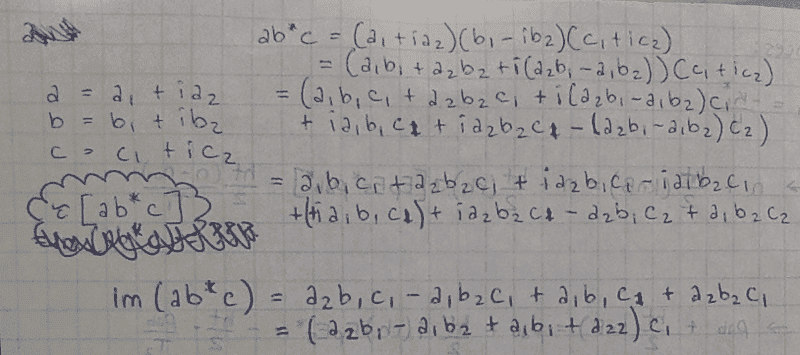 ab*c = (a₁ + ia₂)(b₁ - ib₂)(c₁ + ic₂)
= (a₁b₁ + a₂b₂ + i(a₂b₁ - a₁b₂))(c₁ + ic₂)
a = a₁ + ia₂
b = b₁ + ib₂
c = c₁ + ic₂
= (a₁b₁c₁ + a₂b₂c₁ + i(a₂b₁ - a₁b₂)c₁
+ ia₁b₁c₁ + ia₂b₂c₁ - (a₂b₁ - a₁b₂)c₂)
τ[ab*c]
= a₁b₁c₁ + a₂b₂c₁ + ia₂b₁c₁ - ia₁b₂c₁
+(+ia₁b₁c₁) + ia₂b₂c₁ - a₂b₁c₂ + a₁b₂c₂
im(ab*c) = a₂b₁c₁ - a₁b₂c₁ + a₁b₁c₁ + a₂b₂c₁
= (a₂b₁ - a₁b₂ + a₁b₁ + a₂₂)c₁